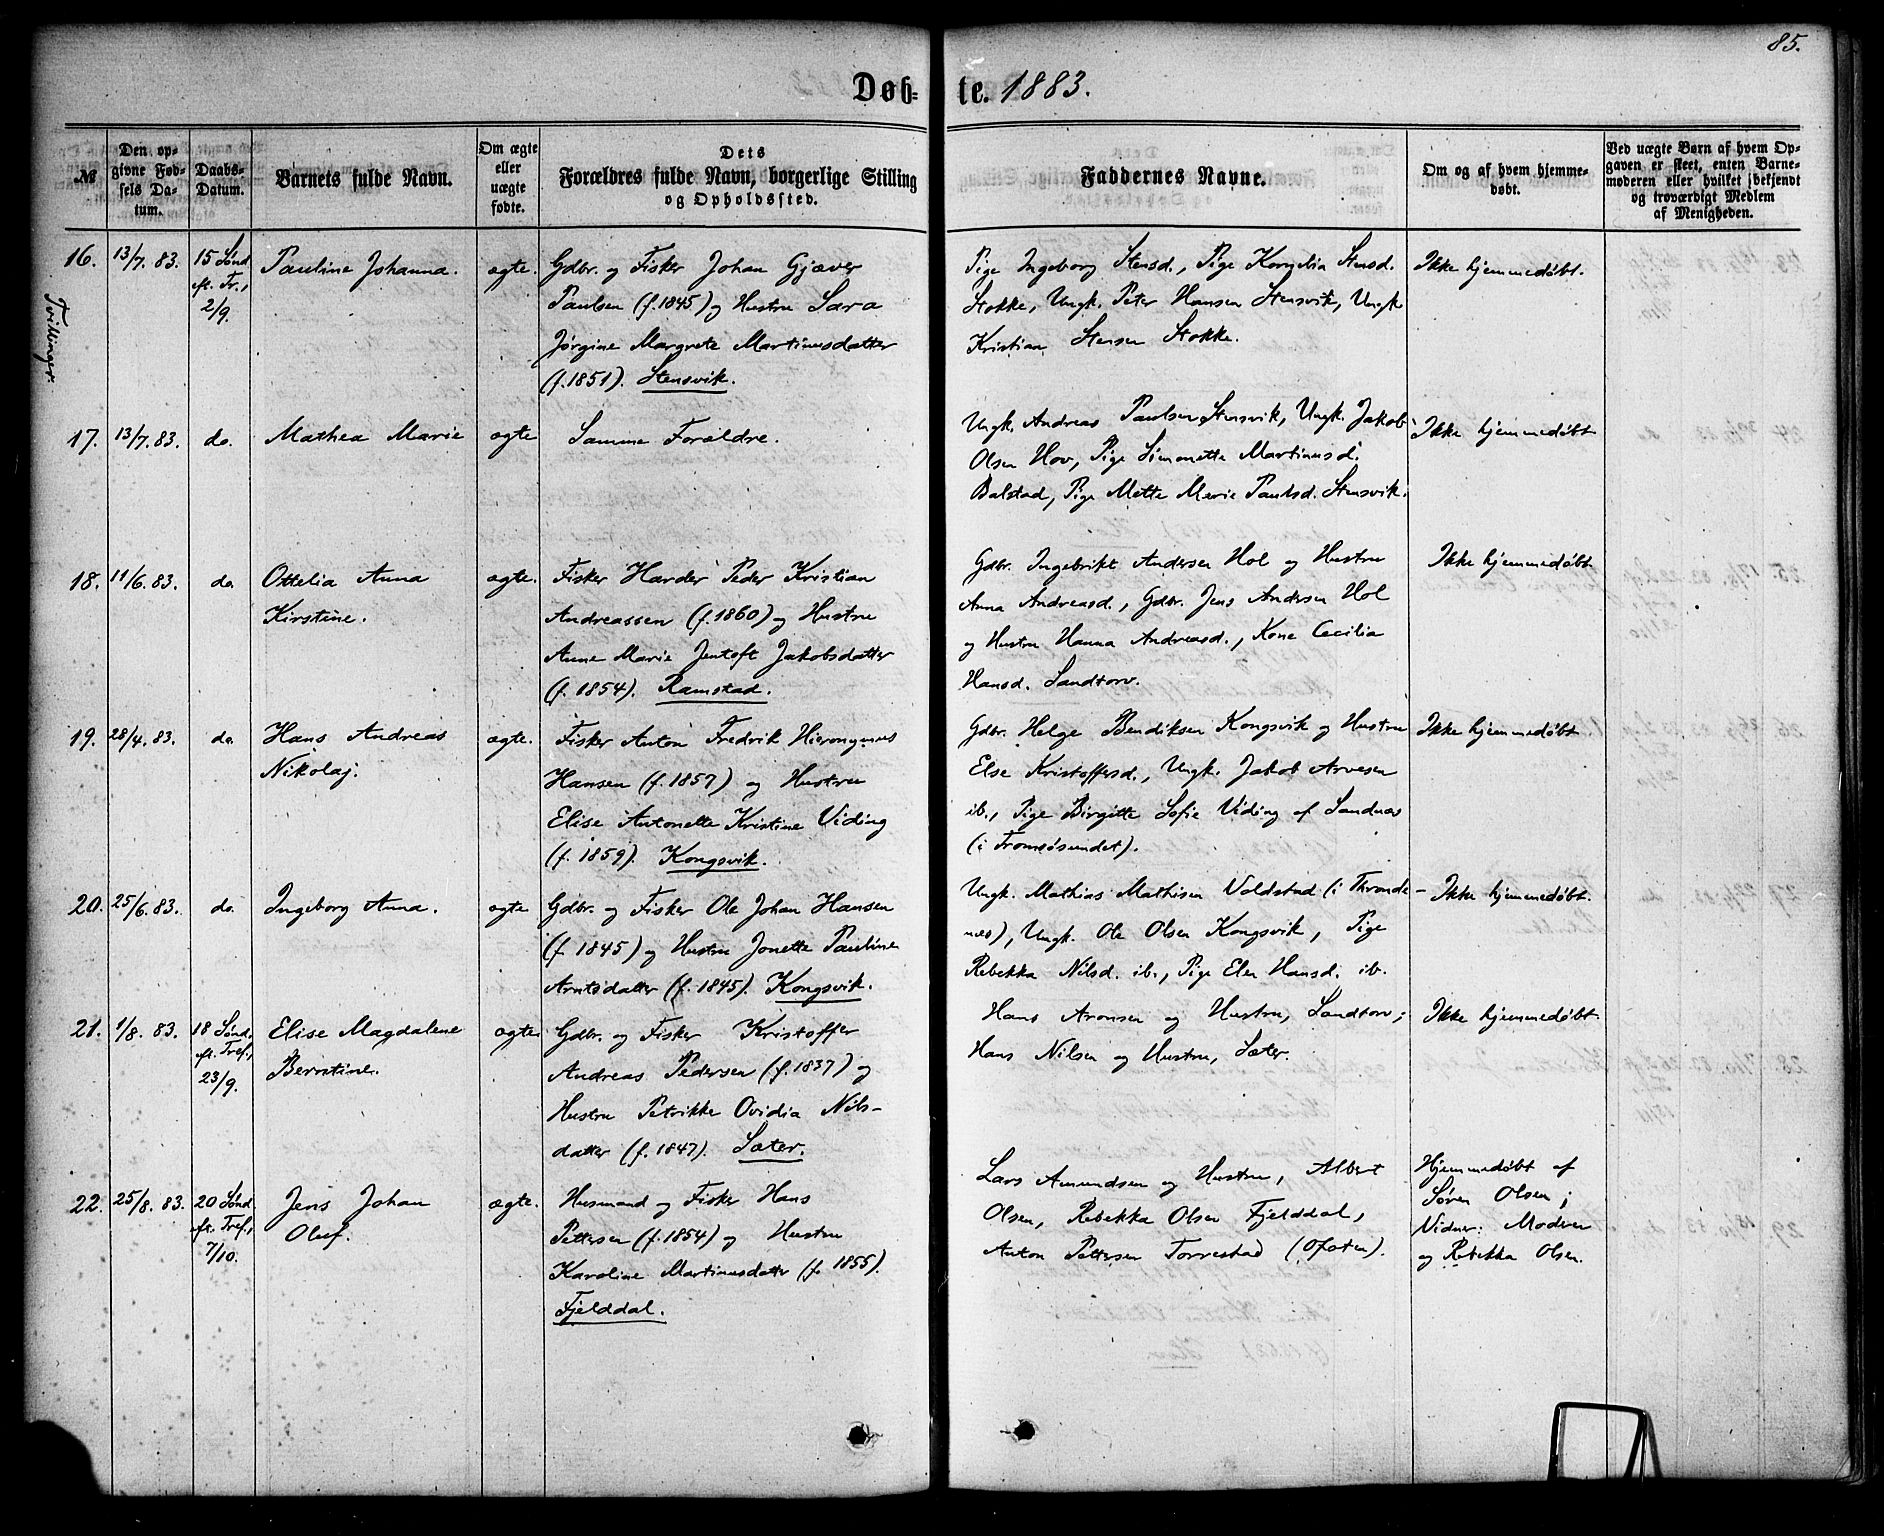 85.
Døb-te. 1883.
№
Den opgivne Fødsels Datum.
Daabs-Datum.
Barnets fulde Navn.
Om ægte eller uægte fødte.
Dets Forældres fulde Navn, borgerlige Stilling og Opholdssted.
Faddernes Navne.
Om og af hvem hjemmedøbt.
Ved uægte Børn af hvem Opgaven er skeet, enten Barnemoderen eller hvilket bekjendt og troværdigt Medlem af Menigheden.
Tvillinger.
16. 13/7. 83. 15 Sønd. eft. Tr., 2/9. Pauline Johanna. ægte.
Gdbr. og Fisker Johan Gjæver
Paulsen (f. 1845) og Hustru Sara
Jørgine Margrete Martinusdatter
(f. 1851). Stensvik.
Pige Ingeborg Stensd., Pige Kornelia Stensd.
Stokke, Ungk. Peter Hansen Stensvik, Ungk.
Kristian Stensen Stokke.
Ikke hjemmedøbt.
17. 13/7. 83. do. Mathea Marie ægte
Samme Forældre.
Ungk. Andreas Paulsen Stensvik, Ungk. Jakob
Olsen Hov, Pige Simonette Martinusd.
Balstad, Pige Mette Marie Paulsd. Stensvik.
Ikke hjemmedøbt
18. 11/6. 83. do. Ottelia Anna
Kirstine. ægte.
Fisker Harder Peder Kristian
Andreassen (f. 1860) og Hustru
Anne Marie Jentoft Jakobsdatter
(f. 1854). Ramstad.
Gdbr. Ingebrikt Andersen Hol og Hustru
Anna Andreasd., Gdbr. Jens Andersen Hol
og Hustru Hanna Andreasd., Kone Cecilia
Hansd. Sandtorv.
Ikke hjemmedøbt
19. 28/4. 83. do. Hans Andreas
Nikolaj. ægte.
Fisker Anton Fredrik Hieronymus
Hansen (f. 1857) og Hustru
Elise Antonette Kristine Viding
(f. 1859). Kongsvik.
Gdbr. Helge Bendiksen Kongsvik og Hustru
Else Kristoffersd., Ungk. Jakob Arvesen
ib., Pige Birgitte Sofie Viding af Sandnæs
(i Tromsøsundet).
Ikke hjemmedøbt
20. 25/6. 83. do. Ingeborg Anna. ægte
Gdbr. og Fisker Ole Johan Hansen
(f. 1845) og Hustru Jonette Pauline
Arntsdatter (f. 1845). Kongsvik.
Ungk. Mathias Mathisen Voldstad (i Thronde-
næs), Ungk. Ole Olsen Kongsvik, Pige
Rebekka Nilsd. ib., Pige Elen Hansd. ib.
Ikke hjemmedøbt.
21. 1/8. 83. 18 Sønd. eft. Tref., 23/9. Elise Magdalene
Berntine. ægte.
Gdbr. og Fisker Kristoffer
Andreas Pedersen (f. 1837) og
Hustru Petrikke Ovidia Nils-
datter (f. 1847). Sæter.
Hans Aronsen og Hustru, Sandtorv;
Hans Nilsen og Hustru, Sæter.
Ikke hjemmedøbt.
22. 25/8. 83. 20 Sønd. eft. Tref., 7/10. Jens Johan
Oluf. ægte.
Husmand og Fisker Hans
Pettersen (f. 1854) og Hustru
Karoline Martinusdatter (f. 1855).
Fjelddal.
Lars Amundsen og Hustru, Albert
Olsen, Rebekka Olsen Fjelddal,
Anton Pettersen Torrestad (Ofoten).
Hjemmedøbt af
Søren Olsen;
Vidner: Moderen
og Rebekka Olsen.